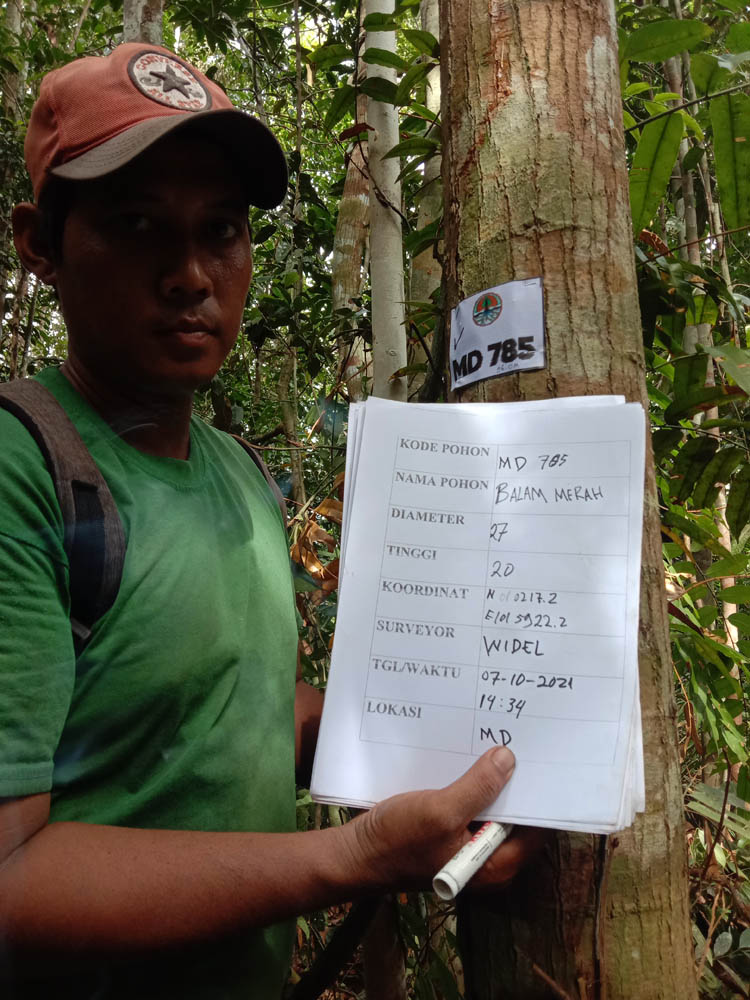 MD 785
KODE POHON MD 785
NAMA POHON BALAM MERAH
DIAMETER 27
TINGGI 20
KOORDINAT N 010217.2
E1015922.2
SURVEYOR WIDEL
TGL/WAKTU 07-10-2021
14:34
LOKASI MD